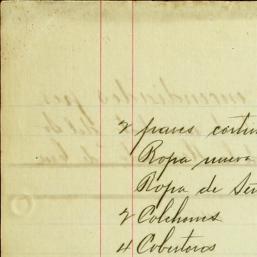 2 pares cortin
Ropa nueva
Ropa de Ser
2 Colchones
4 Cobertores